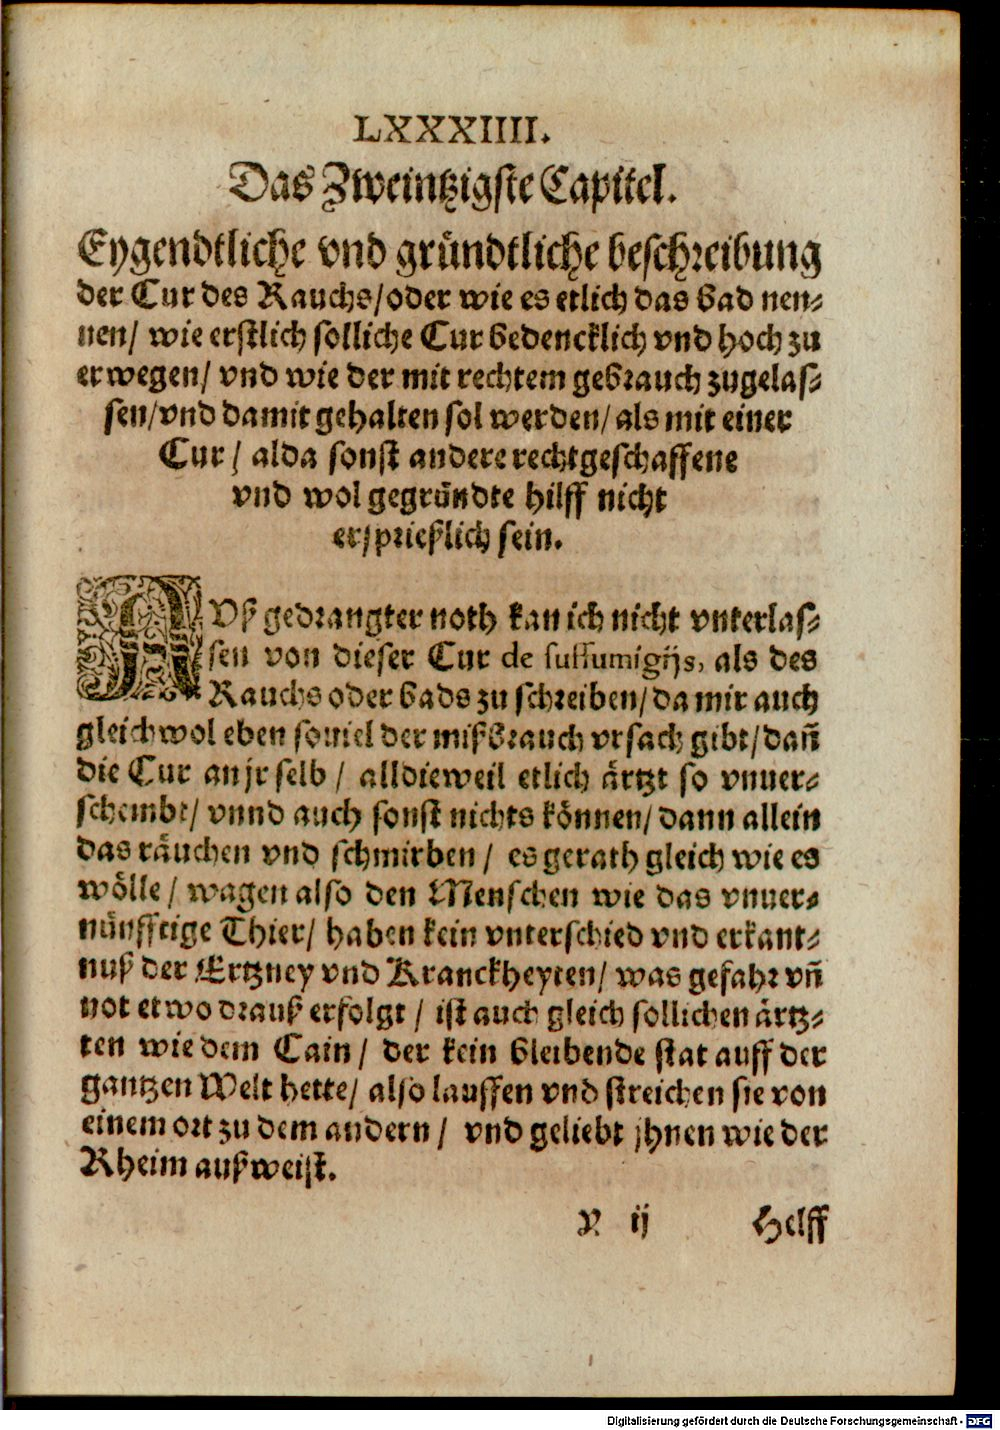 LXXXIIII.
Das Zweintzigste Capitel.
Eygendtliche vnd gründtliche beschreibung
der Cur des Rauchs/oder wie es etlich das bad nen-
nen/ wie erstlich solliche Cur bedencklich vnd hoch zu
erwegen/ vnd wie der mit rechtem gebrauch zugelas-
sen/vnd damit gehalten sol werden/ als mit einer
Cur/ alda sonst andere rechtgeschaffene
vnd wol gegründte hilff nicht
ersprießlich sein.
AVß gedrangter noth kan ich nicht vnterlas-
sen von dieser Cur de suffumigijs, als des
Rauchs oder bads zu schreiben/da mir auch
gleichwol eben souiel der mißbrauch vrsach gibt/dañ
die Cur an jr selb/ alldieweil etlich ärtzt so vnuer-
schembt/ vnnd auch sonst nichts können/ dann allein
das räuchen vnd schmirben/ es gerath gleich wie es
wölle/ wagen also den Menschen wie das vnuer-
nünfftige Thier/ haben kein vnterschied vnd erkant-
nuß der Ertzney vnd Kranckheyten/ was gefahr vñ
not etwo drauß erfolgt/ ist auch gleich sollichen ärtz-
ten wie dem Cain/ der kein bleibende stat auff der
gantzen Welt hette/ also lauffen vnd streichen sie von
einem ort zu dem andern/ vnd geliebt jhnen wie der
Rheim außweist.
Y ij Helff
Digitalisierung gefördert durch die Deutsche Forschungsgemeinschaft - DFG